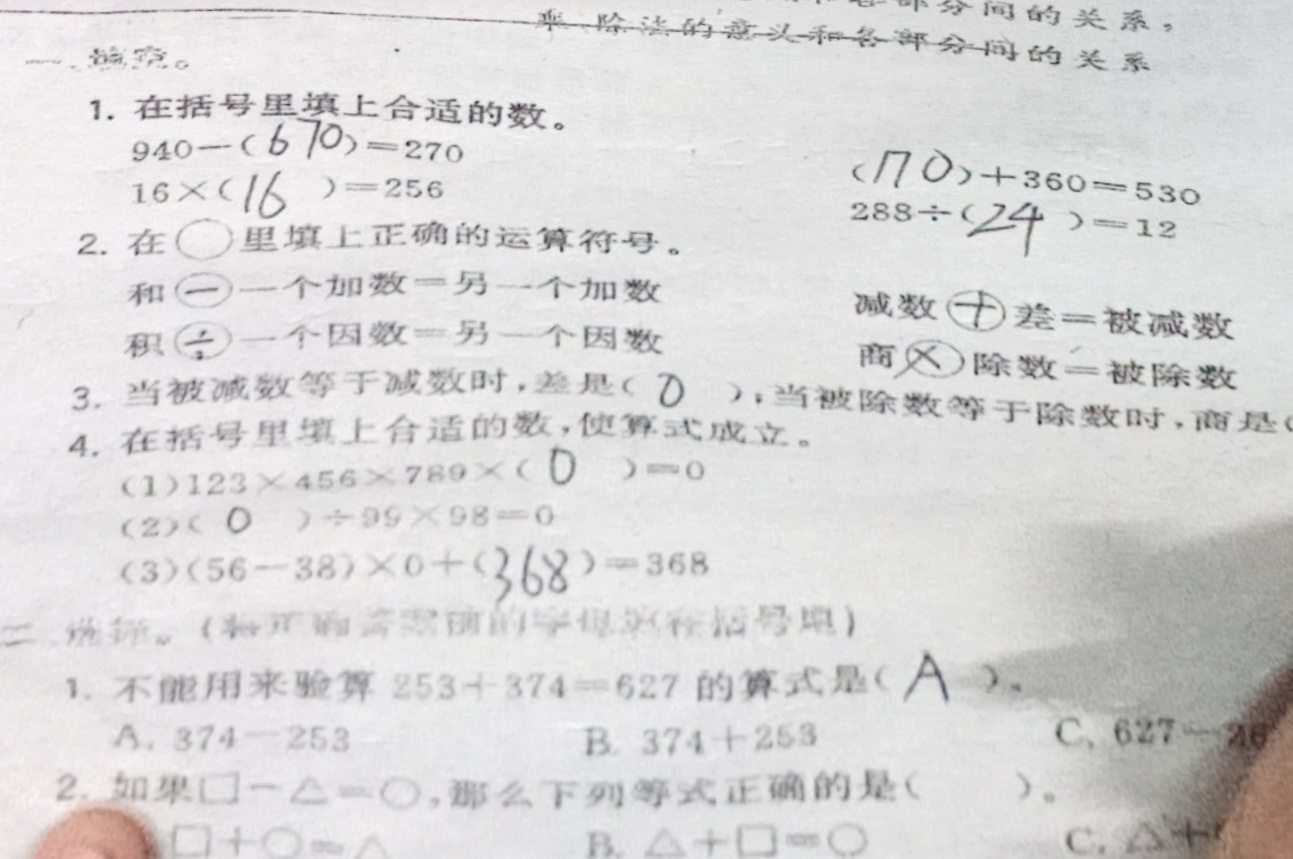 部分间的关系,
乘、除法的意义和各部分间的关系
一、填空。
1. 在括号里填上合适的数。
940－(670)＝270 (170)＋360＝530
16×(16)＝256 288÷(24)＝12
2. 在○里填上正确的运算符号。
和⊖一个加数＝另一个加数 减数⊕差＝被减数
积÷一个因数＝另一个因数 商×除数＝被除数
3. 当被减数等于减数时,差是(0),当被除数等于除数时,商是(
4. 在括号里填上合适的数,使算式成立。
(1)123×456×789×(0)＝0
(2)(0)÷99×98＝0
(3)(56－38)×0＋(368)＝368
二、选择。(将正确答案前的字母填在括号里)
1. 不能用来验算253＋374＝627的算式是(A)。
A. 374－253 B. 374＋253 C. 627－
2. 如果□－△＝○,那么下列等式正确的是( )。
□＋○＝△ B. △＋□＝○ C. △＋